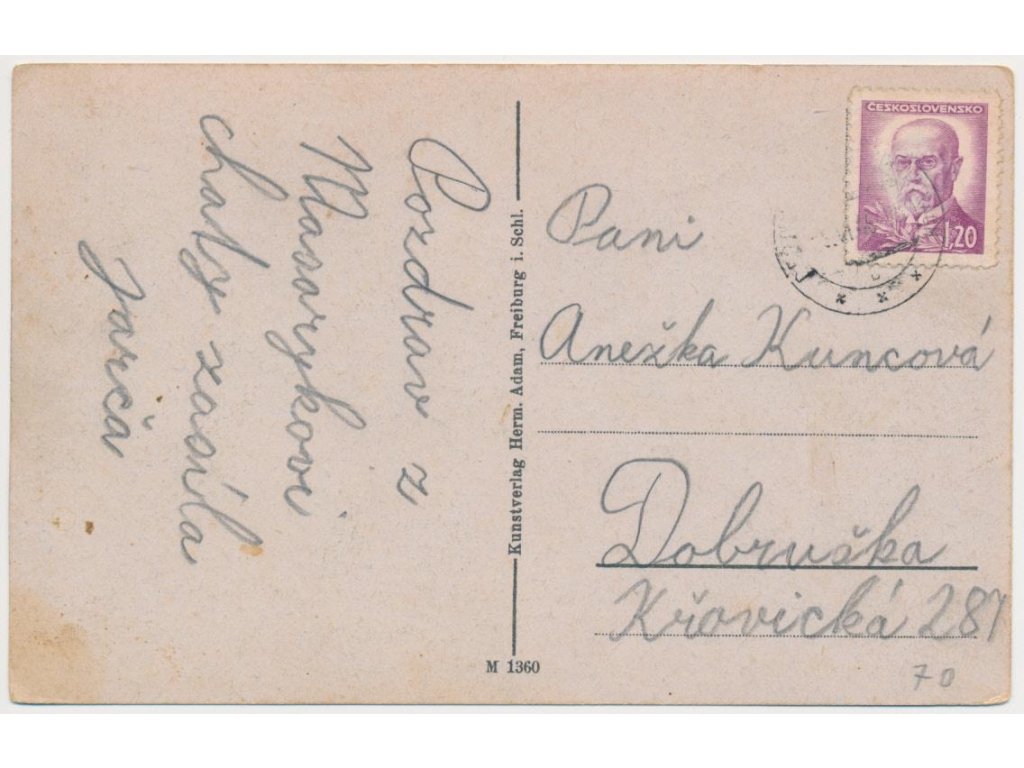 Pozdrav z
Masarykovi
chaty zasíla
Jarča
Kunstverlag Herm. Adam, Freiburg i. Schl.
M 1360
ČESKOSLOVENSKO
1,20
Pani
Anežka Kuncová
Dobruška
Křovická 287
70